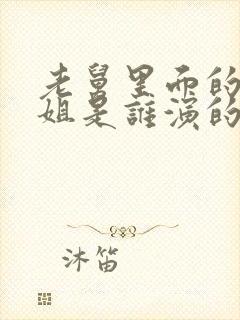 老舅里面的
姐是谁演的
沐笛